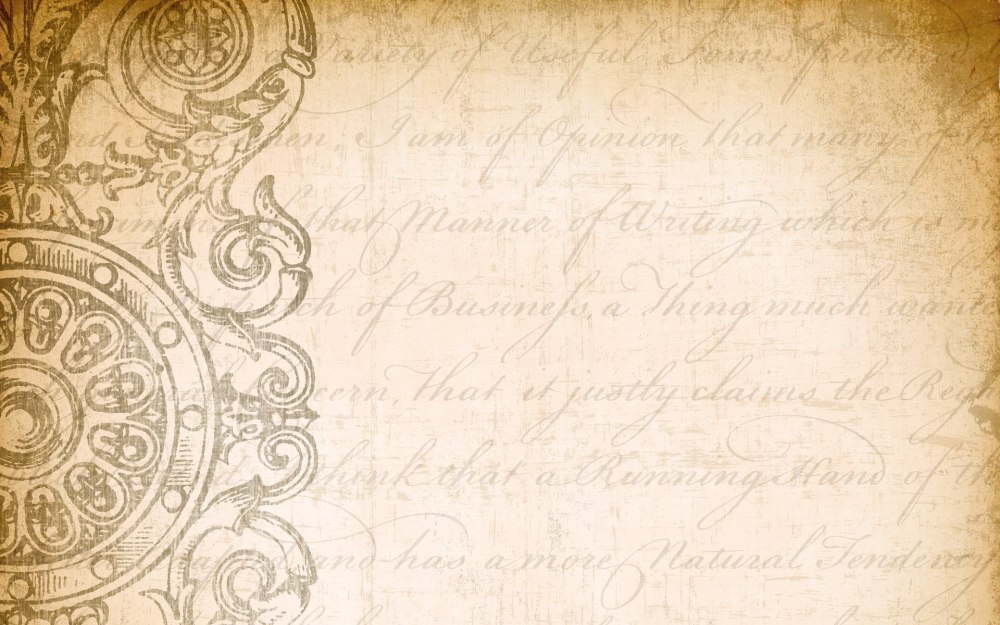 a Variety of Useful Forms practic
men, I am of Opinion that many of
that Manner of Writing which is
of Busineſs a Thing much
cern, that it justly claims the
think that a Running Hand of
and has a more Natural Tendency